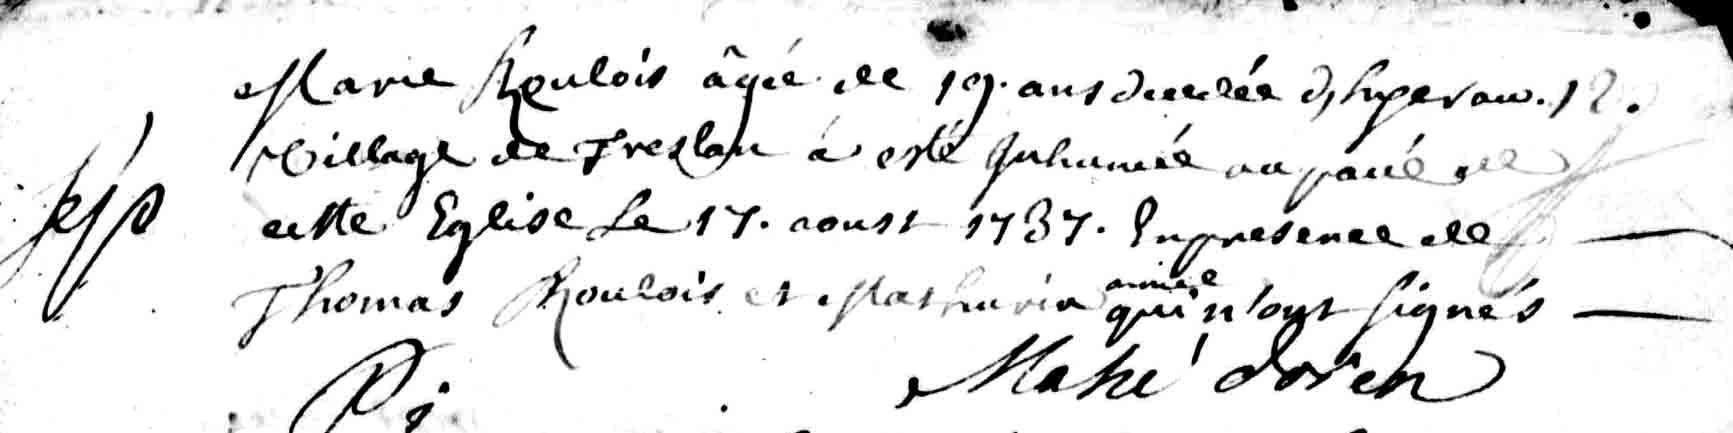 Marie Roulois âgée de 19. ans decedée d'hyer au
Village de Treslan á esté Inhumée au paué de
cette Eglise Le 17. aoust 1737. En presence de
Thomas Roulois et Mathurin qui n'ont signés
Mahé doyen